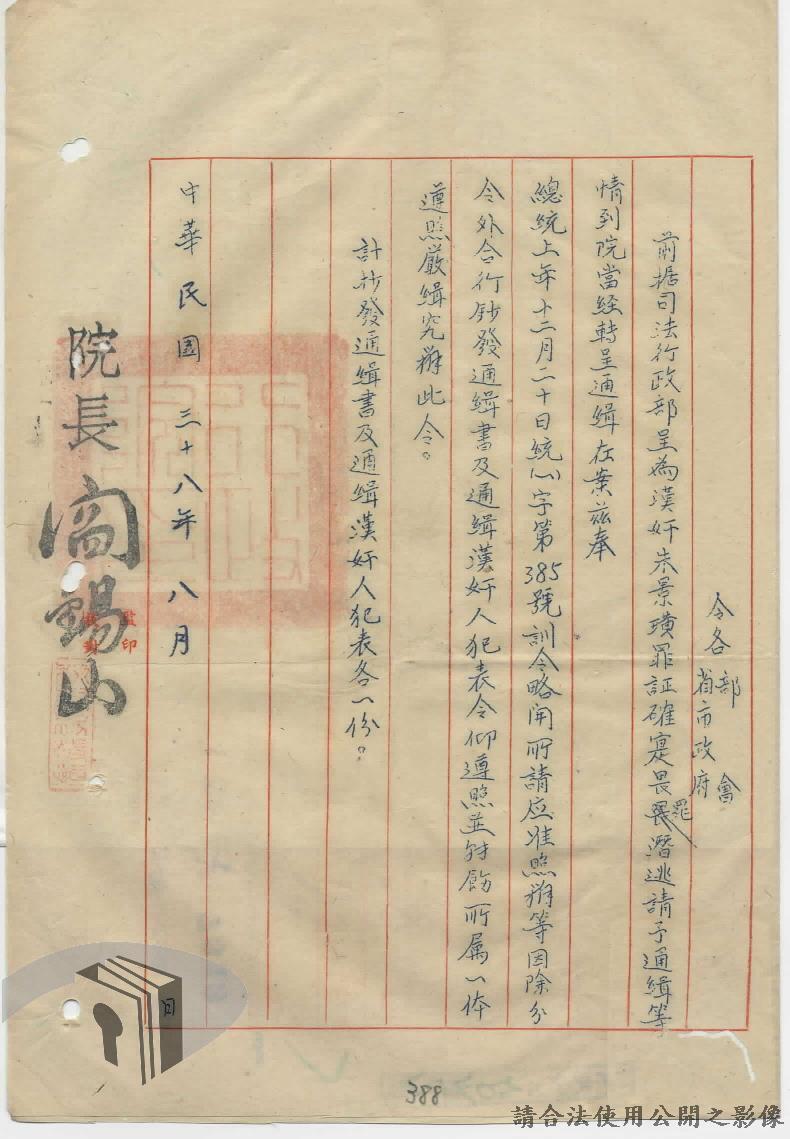 令各部會
省市政府
前据司法行政部呈為漢奸朱景璜罪証確寔畏罪潛逃請予通緝等
情到院當経轉呈通緝在案茲奉
總統上年十二月二十日統(一)字第385號訓令略開所請应准照辦等因除分
令外合行鈔發通緝書及通緝漢奸人犯表令仰遵照並轉飭所属一体
遵照嚴緝究辦此令。
計抄發通緝書及通緝漢奸人犯表各一份。
中華民國三十八年八月 日
院長閻錫山
監印
388
請合法使用公開之影像